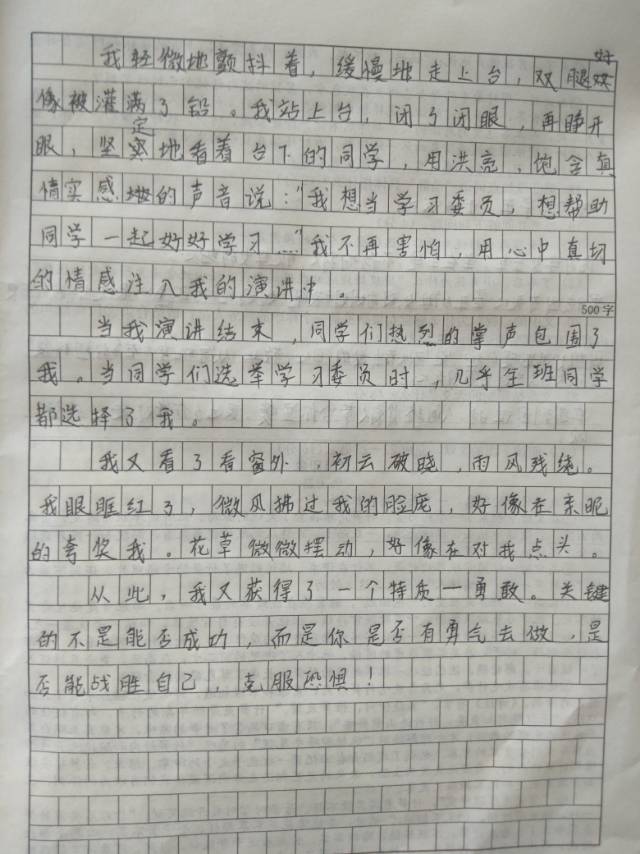 我轻微地颤抖着，缓慢地走上台，双腿好
像被灌满了铅。我站上台，闭了闭眼，再睁开
眼，坚定地看着台下的同学，用洪亮，饱含真
情实感地的声音说："我想当学习委员，想帮助
同学一起好好学习……"我不再害怕，用心中真切
的情感注入我的演讲中。
500字
当我演讲结束，同学们热烈的掌声包围了
我。当同学们选举学习委员时，几乎全班同学
都选择了我。
我又看了看窗外，初云破晓，雨风残绕。
我眼眶红了，微风拂过我的脸庞，好像在亲昵
的夸奖我。花草微微摆动，好像在对我点头。
从此，我又获得了一个特质—勇敢。关键
的不是能否成功，而是你是否有勇气去做，是
否能战胜自己，克服恐惧！